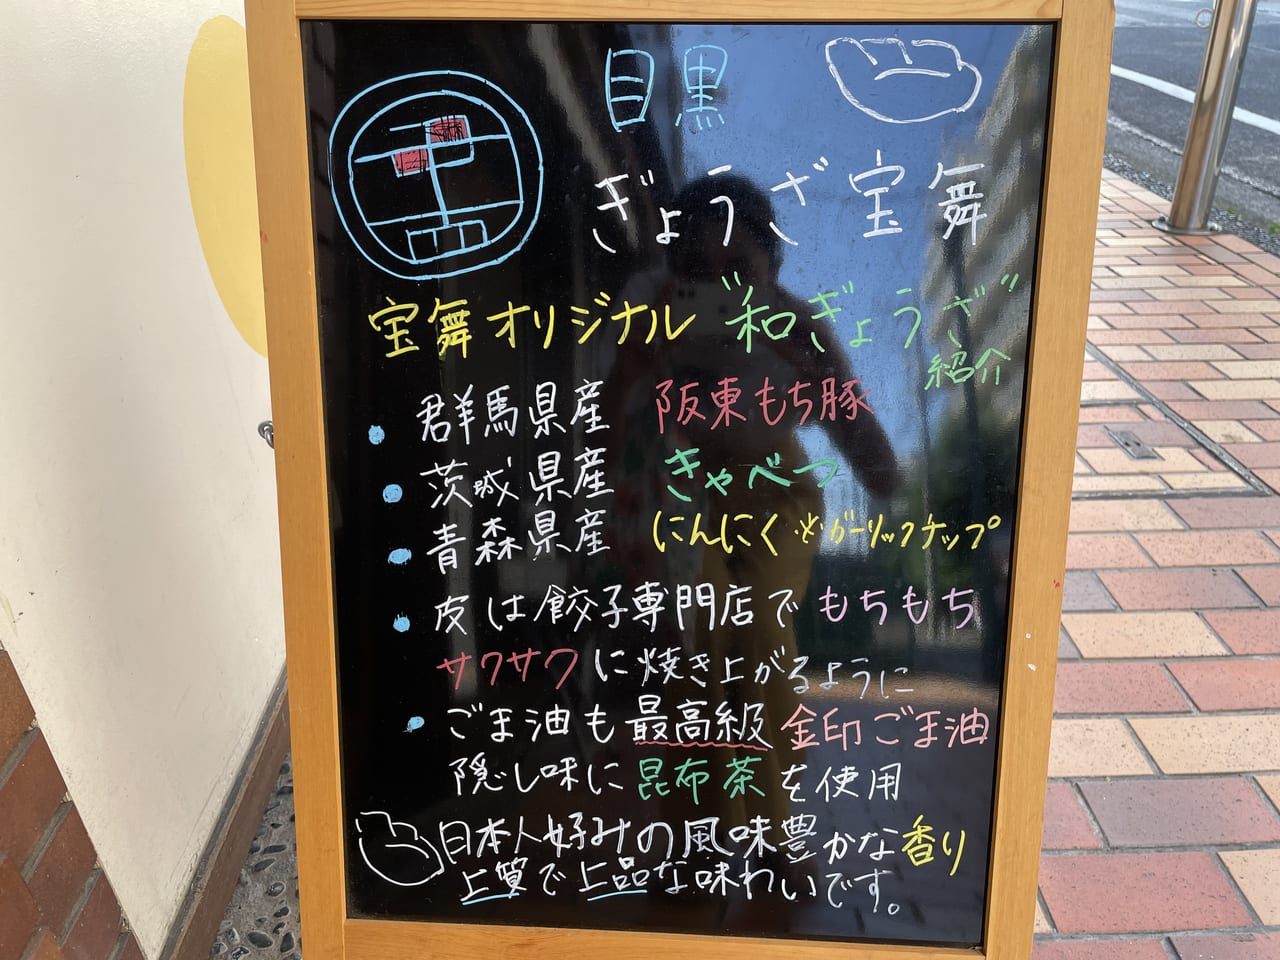 目黒
ぎょうざ宝舞
宝舞オリジナル "和ぎょうざ"
紹介
・群馬県産 阪東もち豚
・茨城県産 きゃべつ
・青森県産 にんにく ※ガーリックチップ
・皮は餃子専門店でもちもち
サクサクに焼き上がるように
・ごま油も最高級 金印ごま油
隠し味に昆布茶を使用
日本人好みの風味豊かな香り
上質で上品な味わいです。